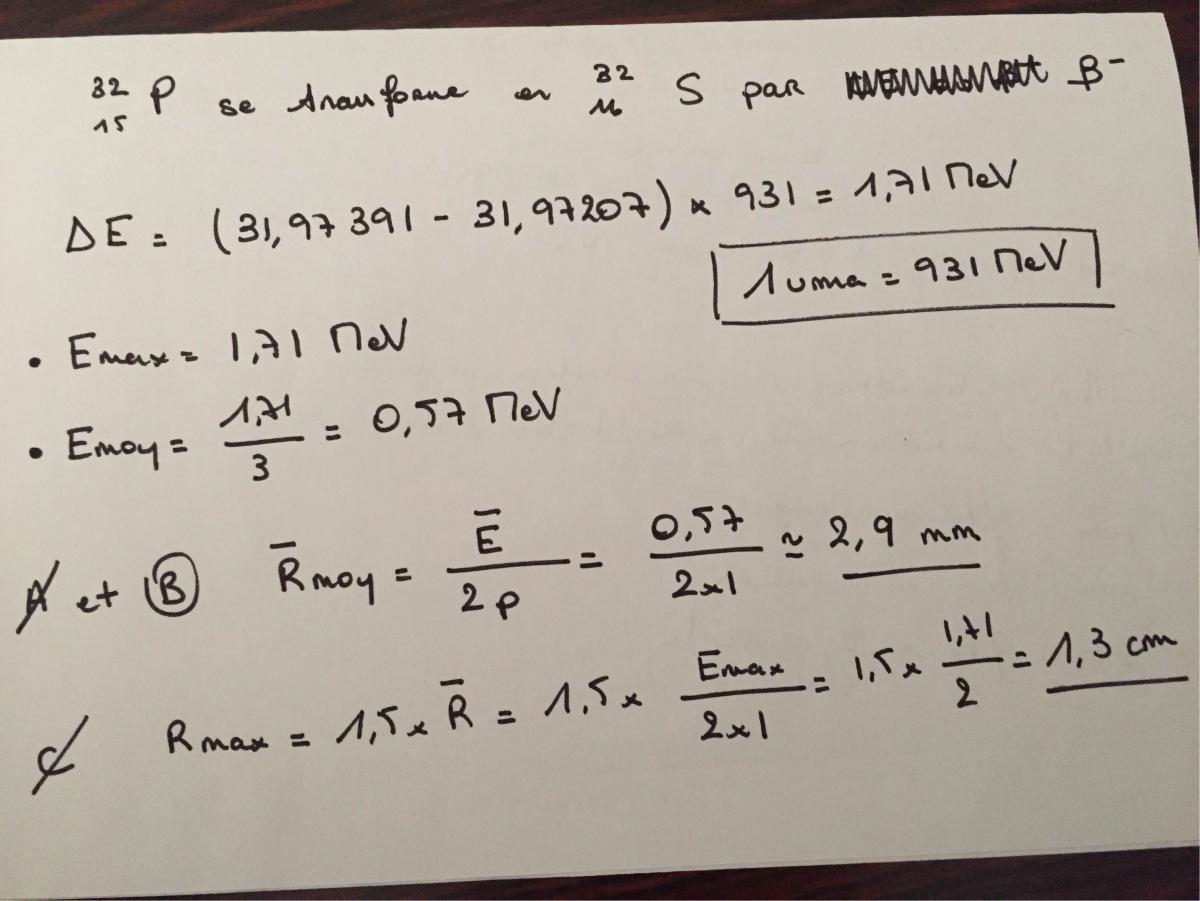 ³²₁₅P se transforme en ³²₁₆S par β⁻
ΔE = (31,97391 - 31,97207) × 931 = 1,71 MeV
1 uma = 931 MeV
• Emax = 1,71 MeV
• Emoy = 1,71/3 = 0,57 MeV
A et B R̄moy = Ē/2ρ = 0,57/2×1 ≃ 2,9 mm
C Rmax = 1,5 × R̄ = 1,5 × Emax/2×1 = 1,5 × 1,71/2 = 1,3 cm